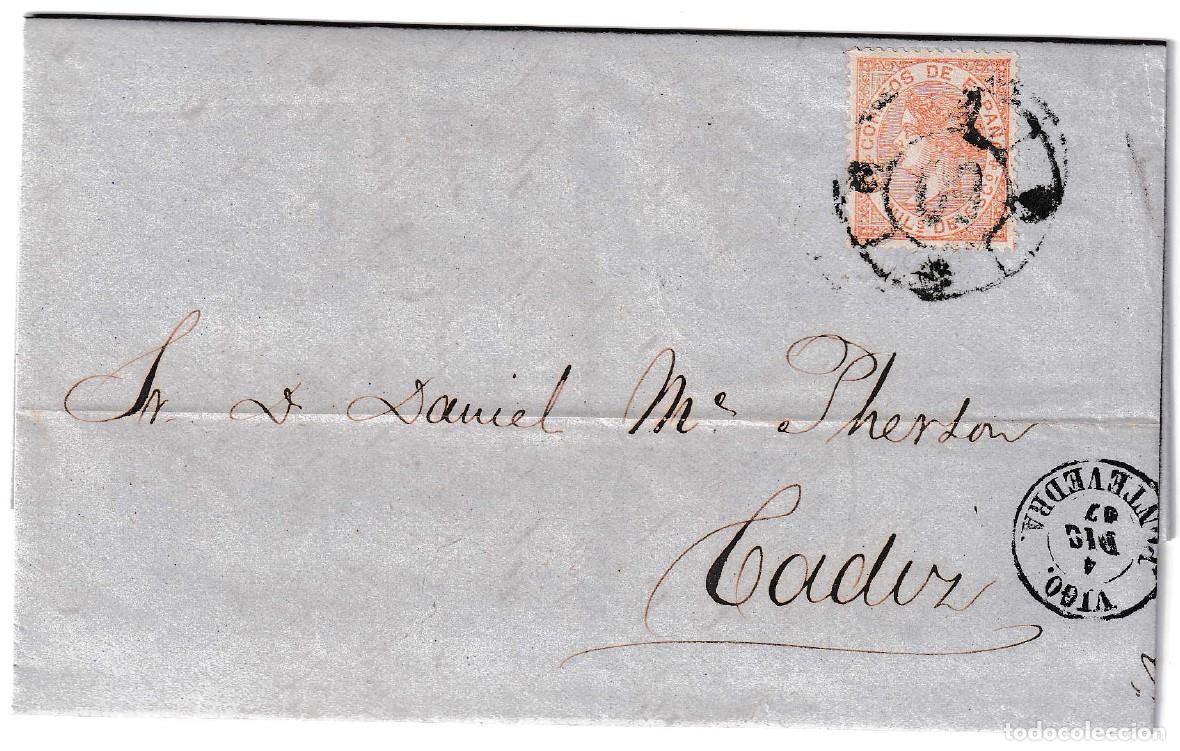 CORREOS DE ESPAÑA
MIL.s DE Co
Sr D Daniel Mc Pherson
Cadiz
VIGO.
4
DIC
67
PONTEVEDRA.
todocoleccion